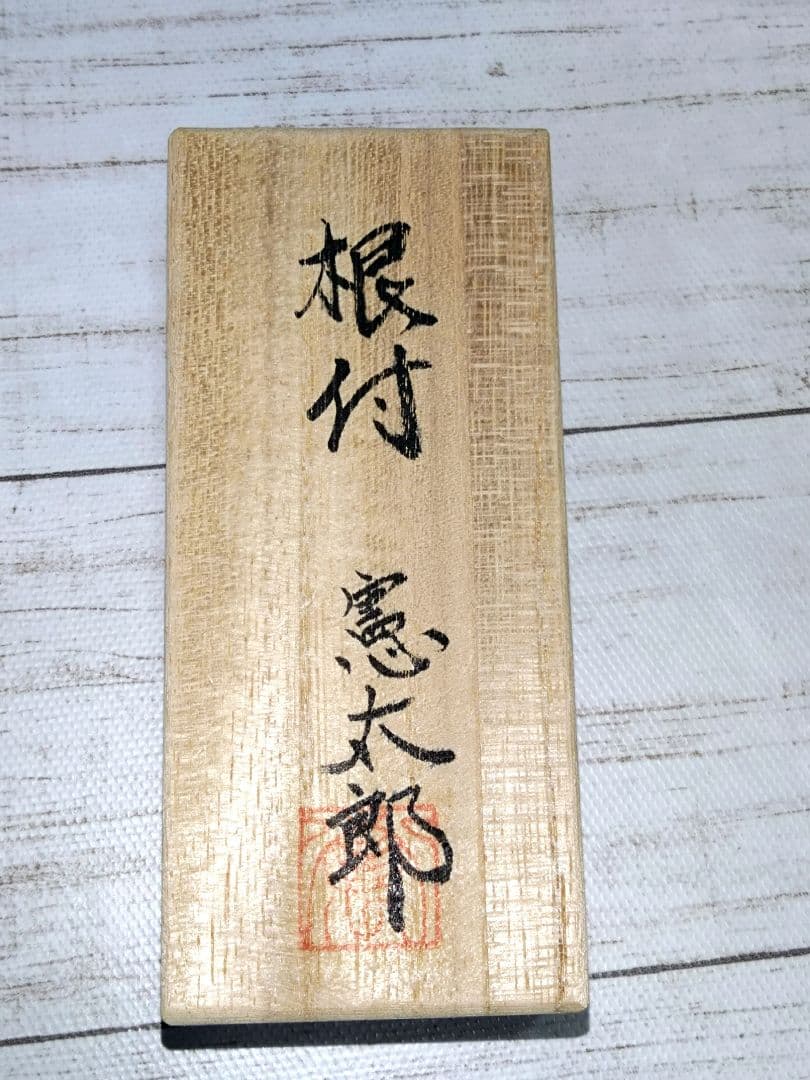 根付
憲太郎